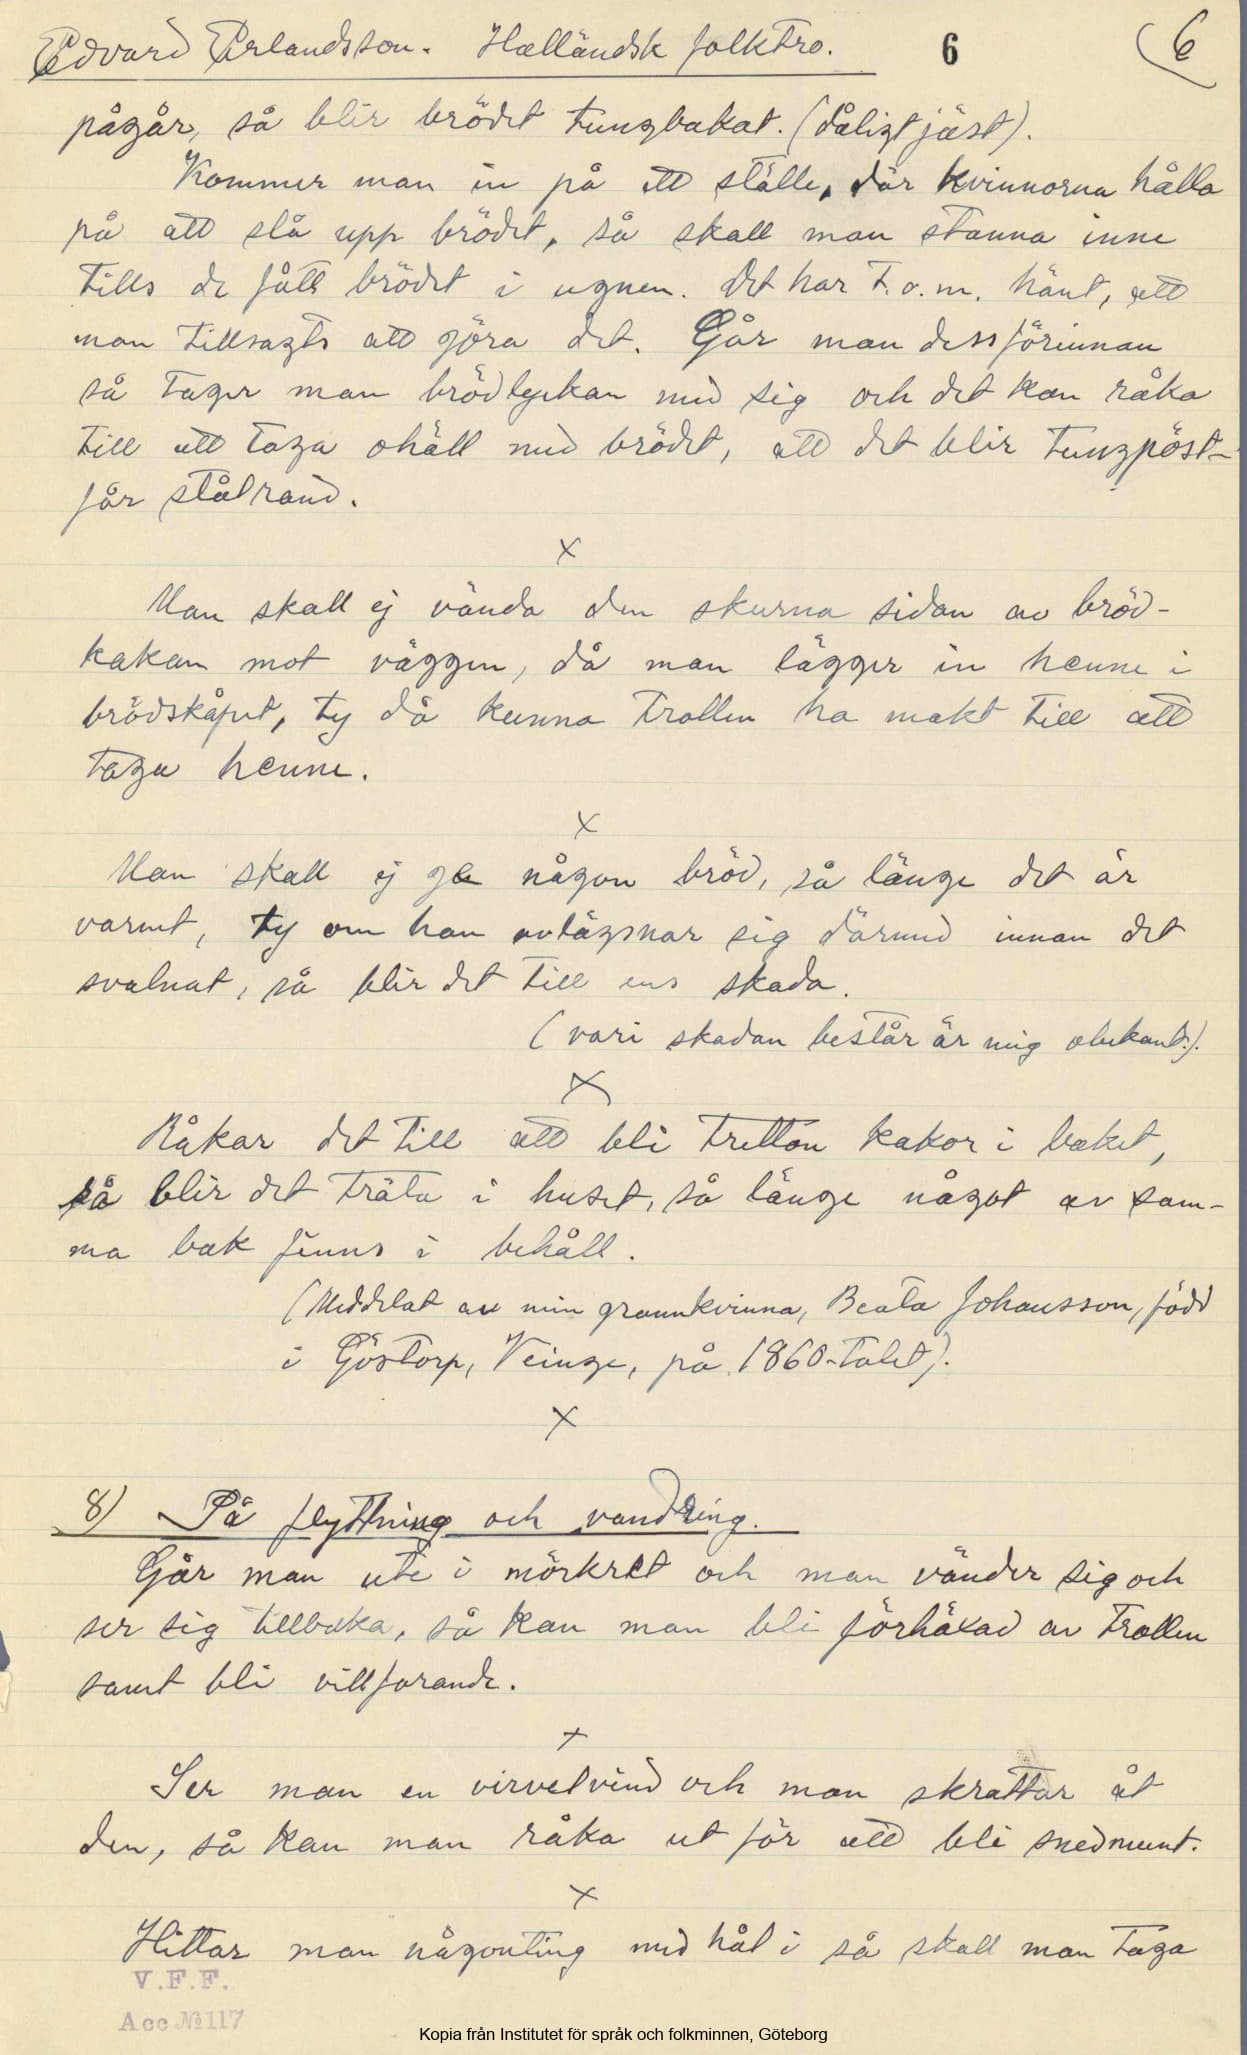 Edvard Erlandsson. Halländsk folktro. 6 6
pågår, så blir brödet tungbakat. (dåligt jäst).
Kommer man in på ett ställe, där kvinnorna hålla
på att slå upp brödet, så skall man stanna inne
tills de fått brödet i ugnen. Det har t.o.m. hänt, att
man tillsagts att göra det. Går man dessförinnan
så tager man brödlyckan med sig och det kan råka
till att taga ohäll med brödet, att det blir tungpöst-
får stålrand.
x
Man skall ej vända den skurna sidan av bröd-
kakan mot väggen, då man lägger in henne i
brödskåpet, ty då kunna trollen ha makt till att
taga henne.
x
Man skall ej ge någon bröd, så länge det är
varmt, ty om han avlägsnar sig därmed innan det
svalnat, så blir det till ens skada.
(vari skadan består är mig obekant.).
x
Råkar det till att bli tretton kakor i baket,
så blir det träta i huset, så länge något av sam-
ma bak finns i behåll.
(Meddelat av min grannkvinna, Beata Johansson, född
i Göstorp, Veinge, på 1860-talet).
x
8) På flyttning och vandring.
Går man ute i mörkret och man vänder sig och
ser sig tillbaka, så kan man bli förhäxad av trollen
samt bli villfarande.
x
Ser man en virvelvind och man skrattar åt
den, så kan man råka ut för att bli snedmunt.
x
Hittar man någonting med hål i så skall man taga
V.F.F.
Acc № 117
Kopia från Institutet för språk och folkminnen, Göteborg